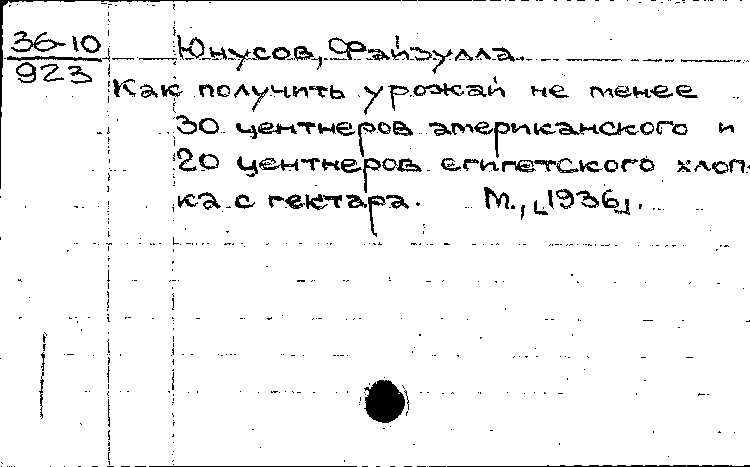 36-10
923
Юнусов, Файзулла.
Как получить урожай не менее
30 центнеров американского и
20 центнеров египетского хлоп-
ка с гектара. М., [1936].